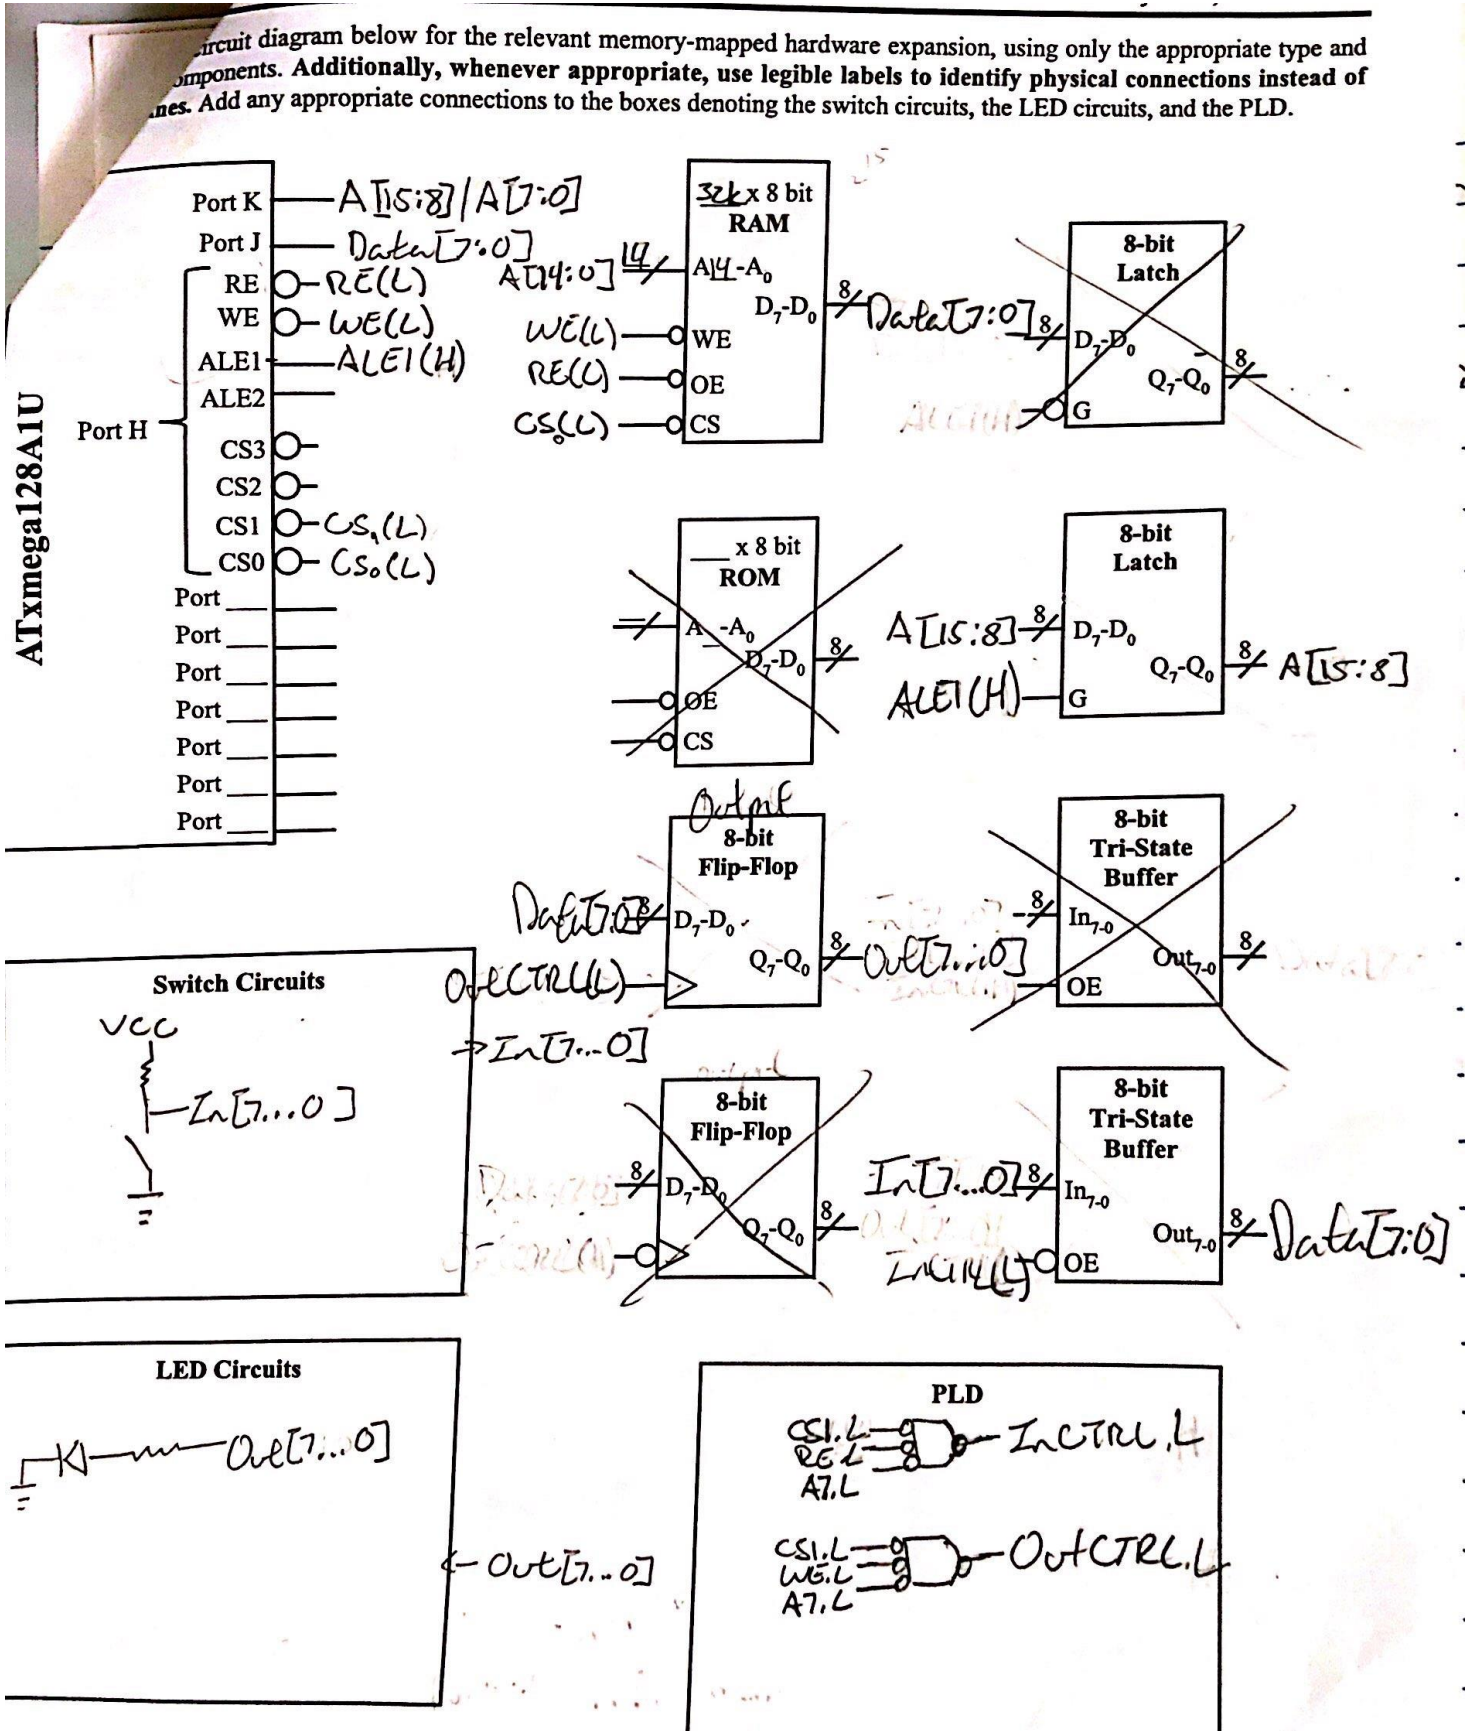 circuit diagram below for the relevant memory-mapped hardware expansion, using only the appropriate type and
components. Additionally, whenever appropriate, use legible labels to identify physical connections instead of
Add any appropriate connections to the boxes denoting the switch circuits, the LED circuits, and the PLD.
ATxmega128A1U
Port K A[15:8]/A[7:0]
Port J Data[7:0]
Port H
RE RE(L)
WE WE(L)
ALE1 ALE1(H)
ALE2
CS3
CS2
CS1 CS1(L)
CS0 CS0(L)
Port ___
Port ___
Port ___
Port ___
Port ___
Port ___
Port ___
32k x 8 bit
RAM
A[14:0] 14 A14-A0
D7-D0 8 Data[7:0]
WE(L) WE
RE(L) OE
CS0(L) CS
8-bit
Latch
8 D7-D0
Q7-Q0 8
G
___ x 8 bit
ROM
A_-A0
D7-D0 8
OE
CS
8-bit
Latch
A[15:8] 8 D7-D0
Q7-Q0 8 A[15:8]
ALE1(H) G
Output
8-bit
Flip-Flop
Data[7:0] 8 D7-D0
Q7-Q0 8 Out[7...0]
OutCTRL(L)
8-bit
Tri-State
Buffer
8 In7-0
Out7-0 8
OE
Switch Circuits
VCC
In[7...0]
In[7...0]
8-bit
Flip-Flop
8 D7-D0
Q7-Q0 8
8-bit
Tri-State
Buffer
In[7...0] 8 In7-0
Out7-0 8 Data[7:0]
InCTRL(L) OE
LED Circuits
Out[7...0]
Out[7...0]
PLD
CS1.L
RE.L InCTRL.L
A7.L
CS1.L
WE.L OutCTRL.L
A7.L